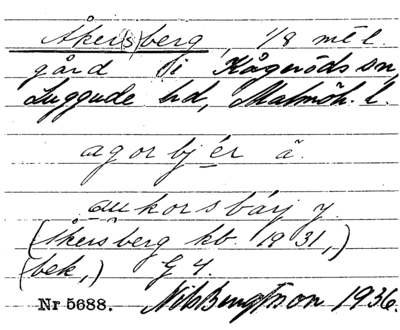 Åker(s)berg, 1/8 mtl.
gård i Kågeröds sn,
Luggude hd, Malmöh. l.
agorbjér ä.
aukorsbárj y.
(Åkersberg kb. 1931,)
(bek,) G 4.
Nr 5688. Nils Bengtsson 1936.